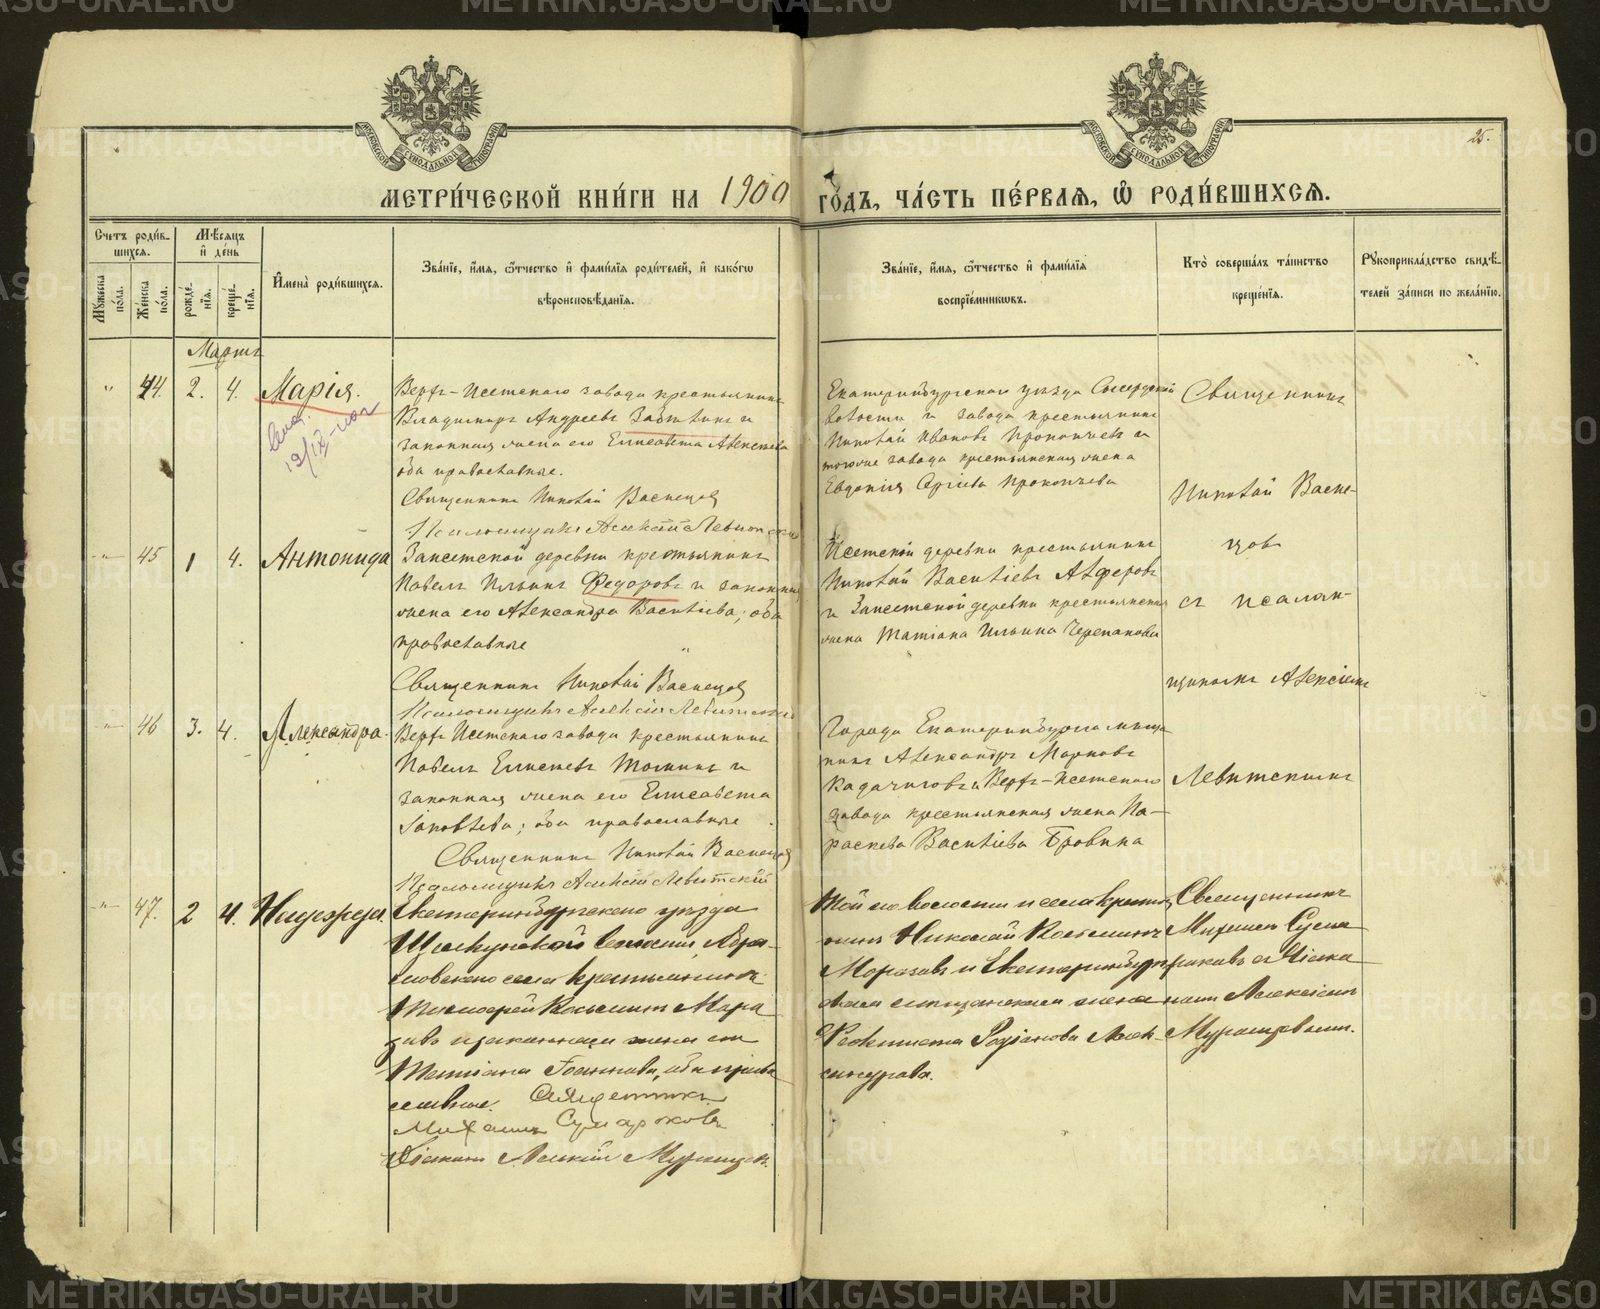 METRIKI.GASO-URAL.RU
25.
МОСКОВСКОЙ СѴНОДАЛЬНОЙ ТИПОГРАФІИ
МОСКОВСКОЙ СѴНОДАЛЬНОЙ ТИПОГРАФІИ
МЕТРИ́ЧЕСКОЙ КНИ́ГИ НА 1900 ГО́ДЪ, ЧА́СТЬ ПЕ́РВАЯ, Ѽ РОДИ́ВШИХСЯ.
Счетъ роди́в-
шихся.
Мꙋжеска по́ла.
Же́нска по́ла.
Мѣсяцъ
и҆ де́нь
рожде́-
нїя.
креще́-
нїя.
И҆мена̀ роди́вшихся.
Зва́нїе, и҆́мя, ѻ҆́тчество и҆ фами́лїя роди́телей, и҆ како́гѡ
вѣроисповѣ́данїя.
Зва́нїе, и҆́мя, ѻ҆́тчество и҆ фами́лїя
воспрїе́мникѡвъ.
Кто̀ соверша́лъ та́инство
креще́нїя.
Рꙋкоприкла́дство свидѣ́-
телей за́писи по жела́нїю.
Мартъ
" 44 2. 4. Марія.
Верхъ-Исетскаго завода крестьянинъ
Владимиръ Андреевъ и
законная жена его Елисавета Алексѣева
оба православные.
Священникъ Николай Васнецовъ
Псаломщикъ Алексій Левитскій
Екатеринбургскаго уѣзда Сысертской
волости и завода крестьянинъ
Николай Ивановъ Прокопьевъ и
тогоже завода крестьянская жена
Евдокія Сергіева Прокопьева
Священникъ
Николай Васне-
цовъ
съ псалом-
щикомъ Алексіемъ
Левитскимъ
" 45 1 4. Антонида
Заисетской деревни крестьянинъ
Павелъ Ильинъ Федоровъ и законная
жена его Александра Васильева; оба
православные
Священникъ Николай Васнецовъ
Псаломщикъ Алексій Левитскій
Исетской деревни крестьянинъ
Николай Васильевъ Алферовъ
и Заисетской деревни крестьянская
жена Татіана Ильина Черепанова
" 46 3. 4. Александра.
Верхъ Исетскаго завода крестьянинъ
Павелъ Елисеевъ Томинъ и
законная жена его Елисавета
Іаковлева; оба православные
Священникъ Николай Васнецовъ
Псаломщикъ Алексій Левитскій
Города Екатеринбурга мѣща-
нинъ Александръ Марковъ
и Верхъ-Исетскаго
завода крестьянская жена Па-
раскева Васильева Бровина
" 47. 2 4. Надежда.
Екатеринбургскаго уѣзда
волости,
села крестьянинъ
Тимофей Косьминъ Моро-
зовъ и законная жена его
Татіана Іоаннова, оба право-
славные. Священникъ
Михаилъ Сушарковъ
Діаконъ Алексій
Той же волости и села крестья-
нинъ Николай Косьминъ
Морозовъ и Екатеринбург-
ская мѣщанская жена
Феоктиста Алек-
Священникъ
Михаилъ
съ Діако-
номъ Алексіемъ